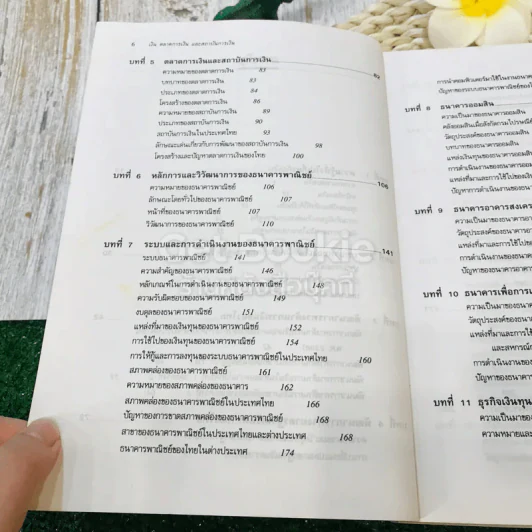 6 เงิน ตลาดการเงิน และสถาบันการเงิน
บทที่ 5 ตลาดการเงินและสถาบันการเงิน 82
ความหมายของตลาดการเงิน 83
บทบาทของตลาดการเงิน 83
ประเภทของตลาดการเงิน 84
โครงสร้างของตลาดการเงิน 86
ความหมายของสถาบันการเงิน 89
ประเภทของสถาบันการเงิน 90
สถาบันการเงินในประเทศไทย 93
ลักษณะเด่นเกี่ยวกับการพัฒนาของสถาบันการเงิน 98
โครงสร้างและปัญหาตลาดการเงินของไทย 100
บทที่ 6 หลักการและวิวัฒนาการของธนาคารพาณิชย์ 106
ความหมายของธนาคารพาณิชย์ 106
ลักษณะโดยทั่วไปของธนาคารพาณิชย์ 107
หน้าที่ของธนาคารพาณิชย์ 107
วิวัฒนาการของธนาคารพาณิชย์ 110
บทที่ 7 ระบบและการดำเนินงานของธนาคารพาณิชย์ 141
ระบบธนาคารพาณิชย์ 141
ความสำคัญของธนาคารพาณิชย์ 146
หลักเกณฑ์ในการดำเนินงานของธนาคารพาณิชย์ 148
ความรับผิดชอบของธนาคารพาณิชย์ 149
งบดุลของธนาคารพาณิชย์ 151
แหล่งที่มาของเงินทุนของธนาคารพาณิชย์ 152
การใช้ไปของเงินทุนของธนาคารพาณิชย์ 154
การให้กู้และการลงทุนของระบบธนาคารพาณิชย์ในประเทศไทย 160
สภาพคล่องของธนาคารพาณิชย์ 161
ความหมายของสภาพคล่องของธนาคาร 162
สภาพคล่องของธนาคารพาณิชย์ในประเทศไทย 166
ปัญหาของการขาดสภาพคล่องของธนาคารพาณิชย์ 168
สาขาของธนาคารพาณิชย์ในประเทศไทยและต่างประเทศ 168
ธนาคารพาณิชย์ของไทยในต่างประเทศ 174
การนำคอมพิวเตอร์มาใช้ในงานธนาค
ปัญหาของระบบธนาคารพาณิชย์ของ
บทที่ 8 ธนาคารออมสิน
ความเป็นมาของธนาคารออมสิน
คลังออมสินเมื่อสังกัดกรมไปรษณีย์
วัตถุประสงค์ของธนาคารออมสิน
บทบาทของธนาคารออมสิน
แหล่งเงินทุนของธนาคารออมสิน
การดำเนินงานของธนาคารออมสิน
แหล่งที่มาและการใช้ไปของเงิน
ปัญหาการดำเนินงานของธนาคาร
บทที่ 9 ธนาคารอาคารสงเคร
ความเป็นมาของธนาคารอาคาร
วัตถุประสงค์ของธนาคารอาคาร
แหล่งที่มาและการใช้ไปของเงิน
การดำเนินงานของธนาคารอา
ปัญหาของธนาคารอาคา
บทที่ 10 ธนาคารเพื่อการเ
ความเป็นมาของธนา
วัตถุประสงค์ของธนา
แหล่งที่มาและการใช้
และสหกรณ์ก
การดำเนินงานของ
ปัญหาของธนาคา
บทที่ 11 ธุรกิจเงินทุน
ความเป็นมา
ความหมายและ
Bookie